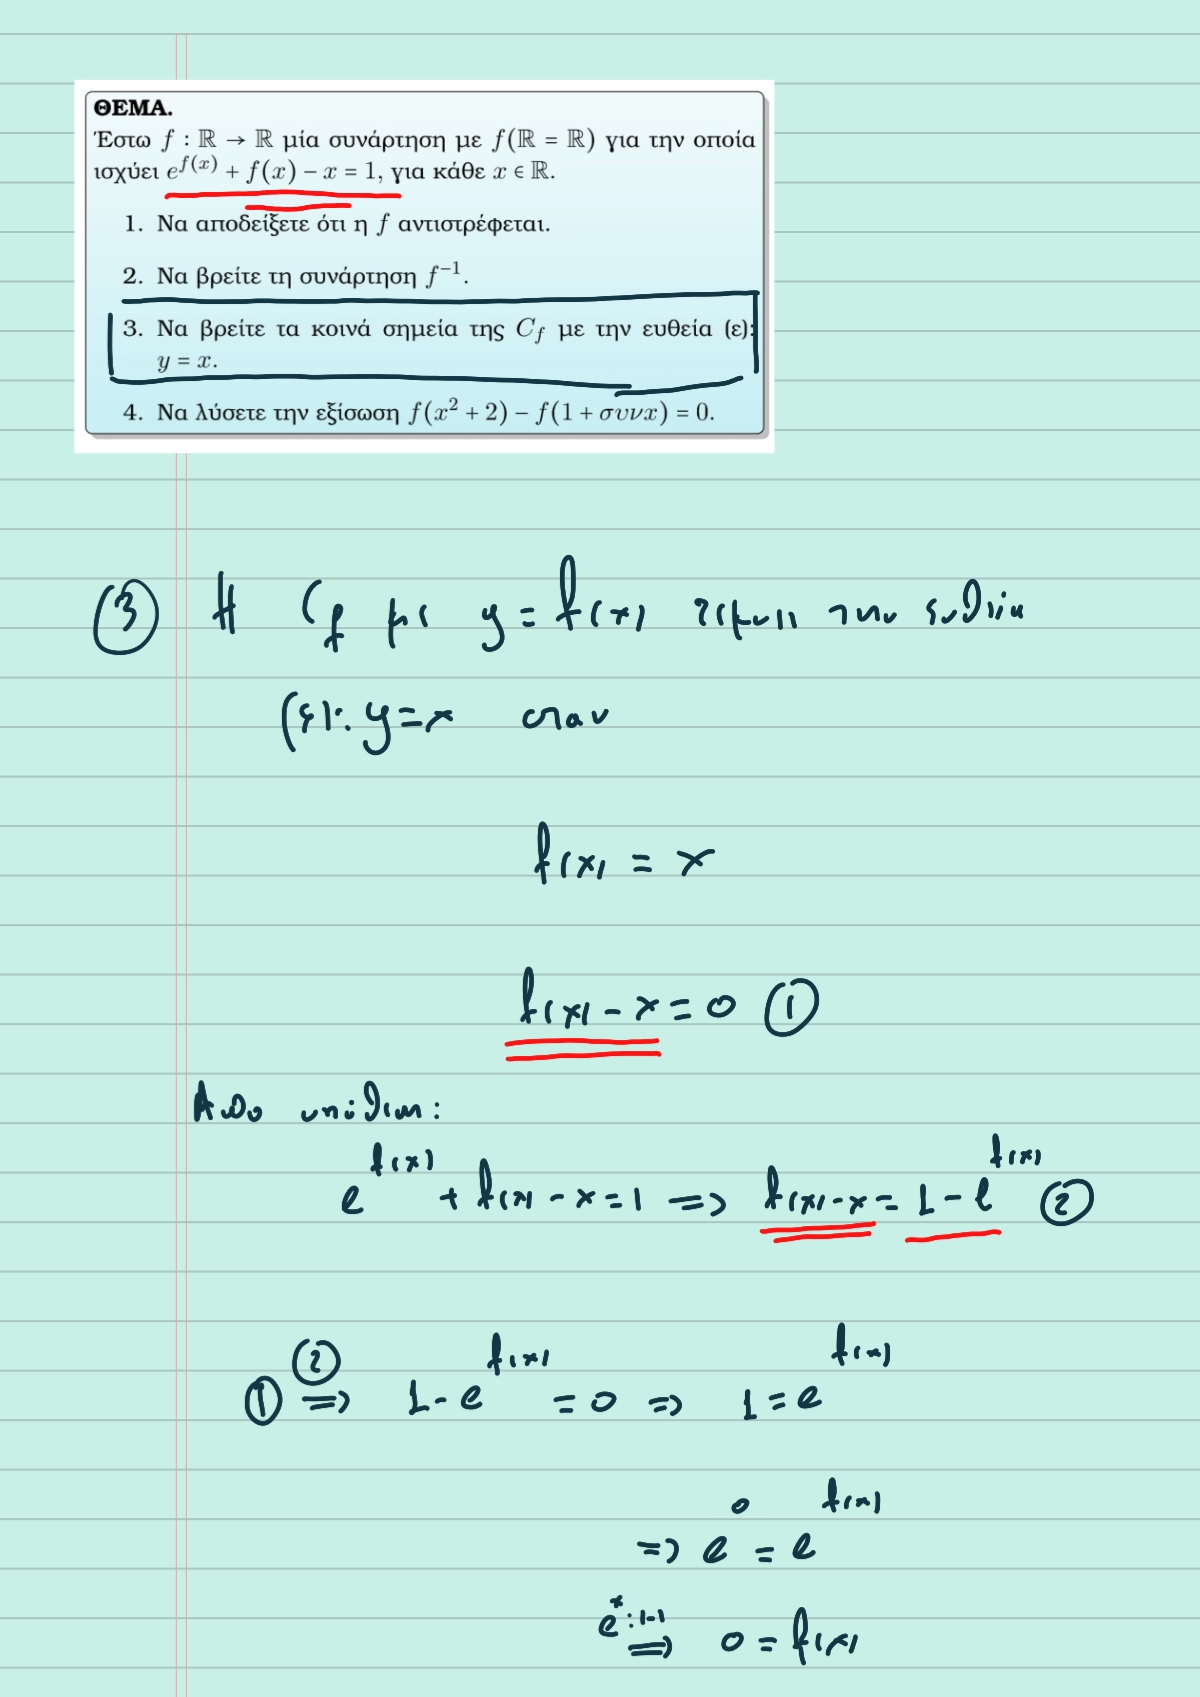 ΘΕΜΑ.
Έστω f : ℝ → ℝ μία συνάρτηση με f(ℝ = ℝ) για την οποία
ισχύει e^{f(x)} + f(x) − x = 1, για κάθε x ∈ ℝ.
1. Να αποδείξετε ότι η f αντιστρέφεται.
2. Να βρείτε τη συνάρτηση f⁻¹.
3. Να βρείτε τα κοινά σημεία της C_f με την ευθεία (ε):
y = x.
4. Να λύσετε την εξίσωση f(x² + 2) − f(1 + συνx) = 0.
③ Η C_f με y = f(x) τέμνει την ευθεία
(ε): y = x όταν
f(x) = x
f(x) − x = 0 ①
Από υπόθεση:
e^{f(x)} + f(x) − x = 1 ⇒ f(x) − x = 1 − e^{f(x)} ②
① ⇒^{②} 1 − e^{f(x)} = 0 ⇒ 1 = e^{f(x)}
⇒ e^0 = e^{f(x)}
⇒^{e^x: 1-1} 0 = f(x)